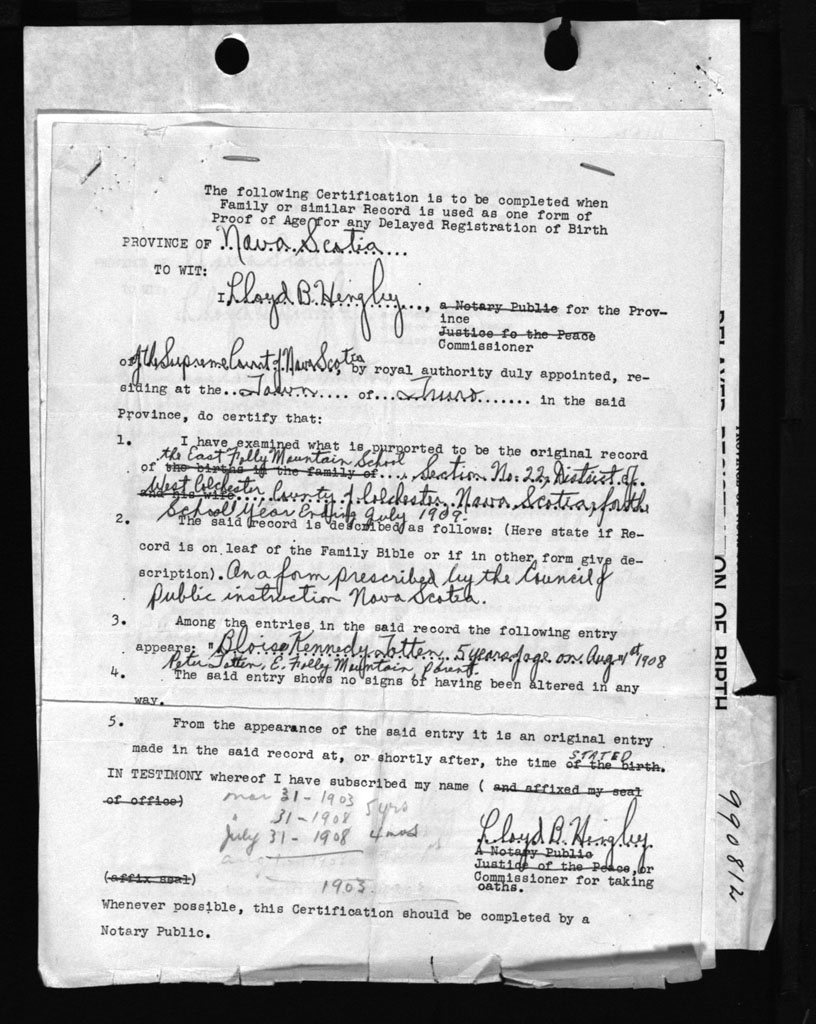 The following Certification is to be completed when
Family or similar Record is used as one form of
Proof of Age for any Delayed Registration of Birth
PROVINCE OF Nova Scotia...
TO WIT:
I Lloyd B. Hingley..., a Notary Public for the Prov-
ince
Justice fo the Peace
Commissioner
of the Supreme Court of Nova Scotia, by royal authority duly appointed, re-
siding at the..Town..... of...Truro....... in the said
Province, do certify that:
1. I have examined what is purported to be the original record
the East Folly Mountain School
of the births in the family of...., Section No. 22, District of
West Colchester, County of Colchester, Nova Scotia, for the
and his wife
School Year Ending July 1909.
2. The said record is described as follows: (Here state if Re-
cord is on leaf of the Family Bible or if in other form give de-
scription). On a form prescribed by the Council of
public instruction Nova Scotia.
3. Among the entries in the said record the following entry
appears: "Bloise Kennedy Totten. 5 years of age on Aug 1st 1908
Peter Totten, E. Folly Mountain parent.
4. The said entry shows no signs of having been altered in any
way.
5. From the appearance of the said entry it is an original entry
made in the said record at, or shortly after, the time of the birth.
STATED
IN TESTIMONY whereof I have subscribed my name ( and affixed my seal
of office)
mar 31 - 1903
31 - 1908 5 yrs
July 31 - 1908 4 mos
1903
Lloyd B. Hingley.
A Notary Public
Justice of the Peace, or
Commissioner for taking
oaths.
(affix seal)
Whenever possible, this Certification should be completed by a
Notary Public.
ON OF BIRTH
990812